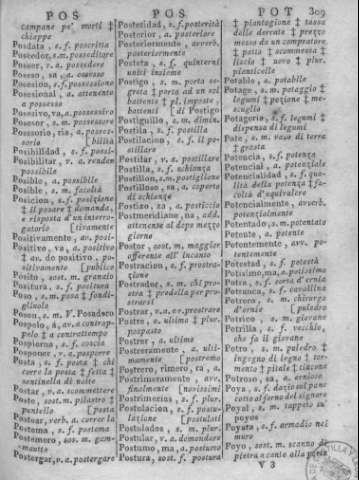 POS
POS
POT 309
campane pe' morti ‡
chiappe
Posdata, s.f. poscritta
Posteedor, s.m. posseditore
Poseer, v.a. possedere
Poseso, sa
Posesion, s.f. possessione
Posesional, a. attenento
a possesso
Posesivo, va, a. possessivo
Posesor, s.m. possessore
Posesorio, ria, a. possessorio
Posibilidad, s.f. possibilità
Posibilitar, v.a. render
possibile
Posible, a. possibile
Posible, s.m. facoltà
Posicion, s.f. posizione
‡ il posare ‡ domanda,
e risposta d'un interrogatorio
Positivamente, av. positivamente
Positivo, va, a. positivo
‡ av. do positivo, positivamente
Posito, sost. m. granaio
Positura, s.f. positura
Poso, s.m. posa ‡ fondigliuolo
Poson, s.m. V. Posadero
Pospelo, á, av. a contrappelo ‡ a contrattempo
Pospierna, s.f. coscia
Posponer, v.a. posporre
Posta, s.f. posta ‡ chi
corre la posta ‡ fetta ‡
sentinella di notte
Postar, v.a. scommettere
Poste, sost. m. pilastro ‡
puntello
Postear, verb. a. correr la
Postema, s.f. postema
Postergar, v.a. postergare
Posteridad, s.f. posterità
Posterior, a. posteriore
Posteriormente, avverb.
posteriormente
Posteta, s.f. quinterni
uniti insieme
Postigo, s.m. porta segreta ‡ porta ad un sol
battente ‡ pl. imposte,
battenti [di Postigo
Postiguillo, s.m. dimin.
Postila, s.f. postilla
Postilacion, s.f. il postillare
Postilar, v.a. postillare
Postilla, s.f. schianza
Postillon, s.m. postiglione
Postilloso, sa, a. coperto
di schianze
Postizo, za, a. posticcio
Postmeridiano, na, add.
attenente al dopo mezzo
giorno
Postor, sost. m. maggior
offerente all' incanto
Postracion, s.f. prostrazione
Postrador, s.m. chi prostra ‡ predella per prostrarsi
Postrar, v.a. e r. prostrare
Postre, a. ultimo ‡ plur.
pospasto
Postrer, a. ultimo
Postreramente, a. ultimamente [postremo
Postrero, rimero, ra, a.
Postrimeramente, avv.
finalmente [novissimi
Postrimerías, s.f. plur.
Postulacion, s.f. postulazione [postulati
Postulados, s.m. plur.
Postular, v.a. domandare
Postumo, ma, a. postumo
Postura, sost. f. postura
‡ piantagione ‡ tassa
delle derrate ‡ prezzo
messo da un compratore
‡ patto ‡ scommessa ‡
liscio ‡ uovo ‡ plur.
pianticelle
Potable, a. potabile
Potage, s.m. potaggio ‡
legumi ‡ pozione ‡ mescuglio
Potageria, s.f. legumi ‡
dispensa di legumi
Pote, s.m. vaso di terra
‡ grasta
Potencia, s.f. potenza
Potencial, a. potenziale
Potencialidad, s.f. qualità della potenza ‡ facoltà d'equivalere
Potencialmente, avverb.
potenzialmente
Potentado, s.m. potentato
Potente, a. potente
Potentemente, avv. potentemente
Potestad, s.f. potestà
Potisimo, ma, a. potissimo
Potra, s.f. sorta d'ernia
Potranca, s.f. cavallina
Potrero, s.m. chirurgo
d'ernie [puledro
Potrico, s.m. giovane
Potrilla, s.f. vecchio,
che fa il giovane
Potro, s.m. puledro ‡
ingegno di legno ‡ tormento ‡ pitale ‡ tincone
Potroso, sa, a. ernioso
Poya, s.f. dazio sul pane
cotto al forno del signore
Poyal, s.m. tappeto su'
poyos
Poyata, s.f. armadio nel
muro
Poyo, sost. m. scanno di
pietra accanto alla porta
V 3